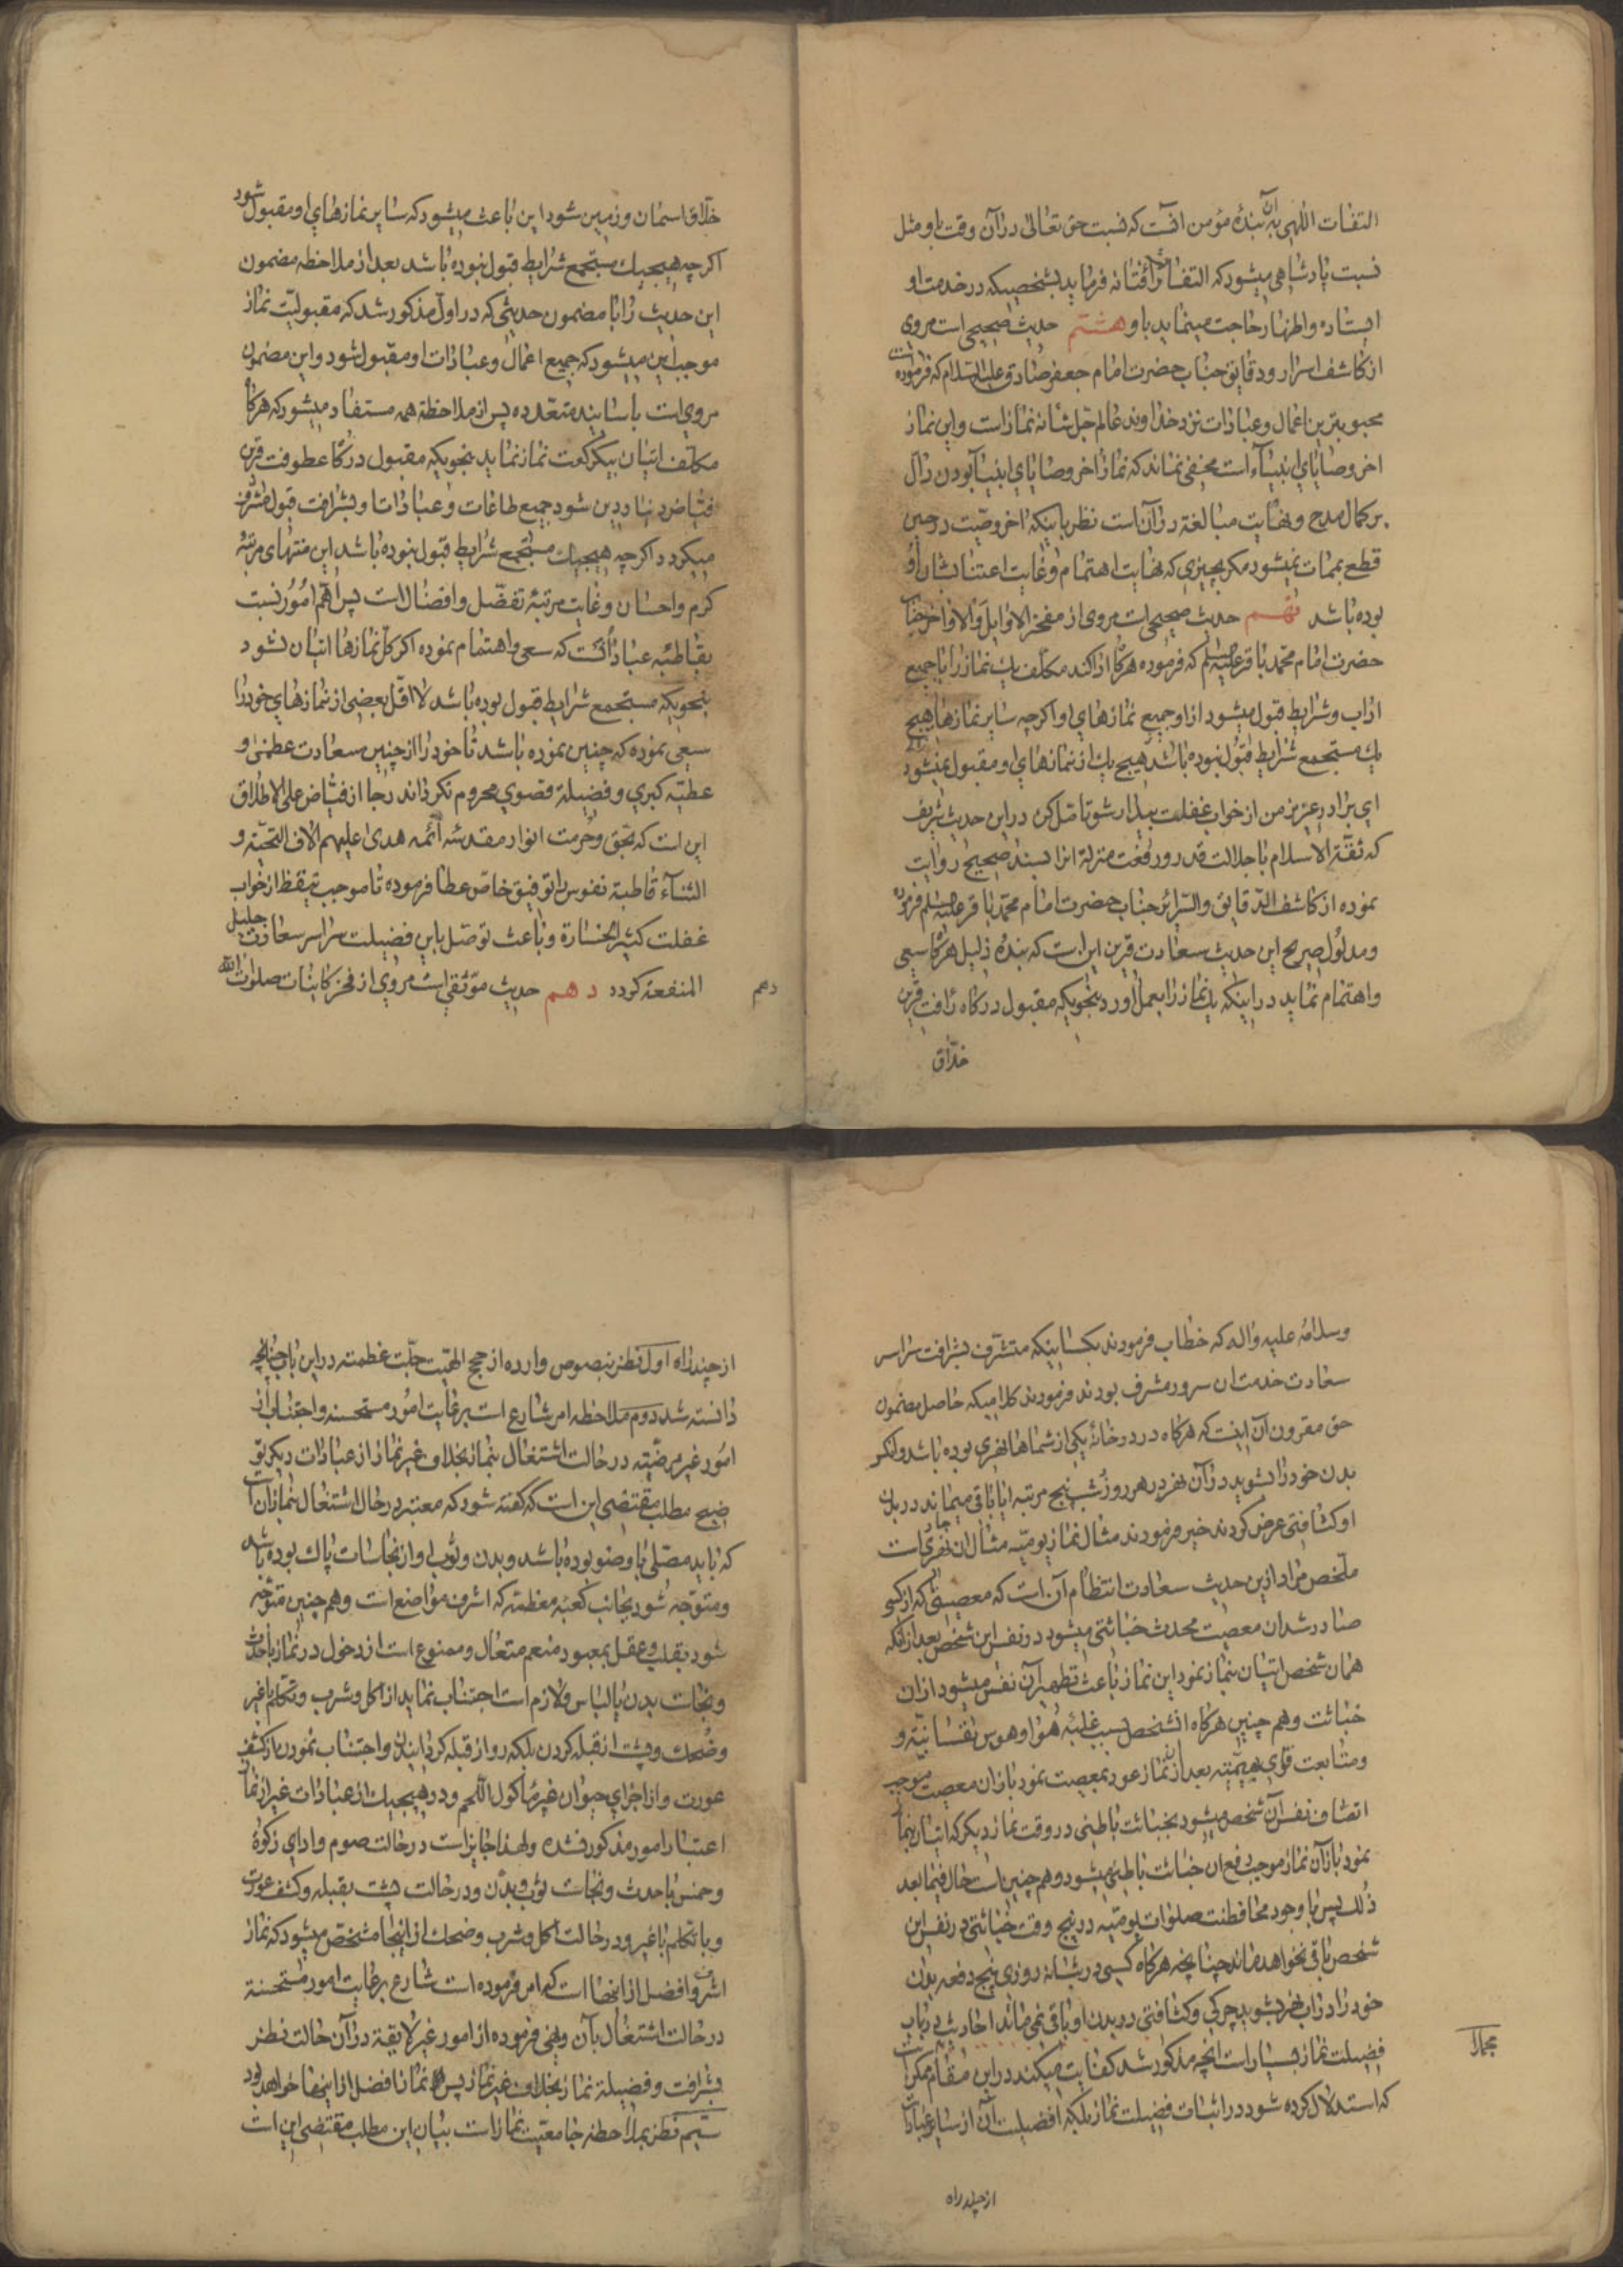 التفات اللهی بآن بندهٔ مؤمن آنست که نسبت حق تعالی در آن وقت باو مثل
نسبت پادشاهی میشود که التفات رأفتانه فرماید بشخصیکه در خدمت او
ایستاده و اظهار حاجت مینماید باو هشتم حدیث صحیحی است مروی
از کاشف اسرار و دقایق جناب حضرت امام جعفر صادق علیه السلام که فرموده است
محبوبترین اعمال و عبادات نزد خداوند عالم جل شانه نماز است و این نماز
اخر وصایای انبیآء است مخفی نماند که نماز اخر وصایای انبیآ بودن دال
بر کمال مدح و نهایت مبالغة در آن است نظر باینکه اخر وصیت در حین
قطع بممات نمیشود مکر بچیزی که نهایت اهتمام و غایت اعتنا بشان او
بوده باشد نهم حدیث صحیحی است مروی از مفخر الاوایل والاواخر جناب
حضرت امام محمد باقر علیه السلم که فرموده هرکاه ادا کند مکلف یک نماز را با جمیع
اداب و شرایط قبول میشود از او جمیع نمازهای او اکرچه سایر نمازها هیچ
یک مستجمع شرایط قبول نبوده باشد هیچ یک از نمازهای او مقبول نمیشود
ای برادر عزیز من از خواب غفلت بیدار شو تامل کن در این حدیث شریف
که ثقة الاسلام با جلالت قدر و رفعت منزلة انرا بسند صحیح روایت
نموده از کاشف الدقایق والسرائر جناب حضرت امام محمد باقر علیه السلم فرموده
و مدلول صریح این حدیث سعادت قرین این است که بندهٔ ذلیل هرکاه سعی
و اهتمام نماید در اینکه یک نماز را بعمل اورد بنحویکه مقبول درکاه رأفت قرین
خلاق
خلاق اسمان و زمین شود این باعث میشود که سایر نمازهای او مقبول شود
اکرچه هیچیک مستجمع شرایط قبول نبوده باشد بعد از ملاحظه مضمون
این حدیث را با مضمون حدیثی که در اول مذکور شد که مقبولیت نماز
موجب این میشود که جمیع اعمال و عبادات او مقبول شود و این مضمون
مروی است باسانید متعدده پس از ملاحظه همه مستفاد میشود که هرکاه
مکلف اتیان بیکرکعت نماز نماید بنحویکه مقبول درکاه عطوفت قرین
فیاض دنیا و دین شود جمیع طاعات و عبادات او بشرافت قبول مشرف
میکردد اکرچه هیچیک مستجمع شرایط قبول نبوده باشد این منتهای مرتبهٔ
کرم و احسان و غایت مرتبهٔ تفضل و افضال است پس اهم امور نسبت
بقاطبهٔ عباد آنست که سعی و اهتمام نموده اکر کل نمازها اتیان نشود
بنحویکه مستجمع شرایط قبول بوده باشد لا اقل بعضی از نمازهای خود را
سعی نموده که چنین نموده باشد تا خود را از چنین سعادت عظمی و
عطیه کبری و فضیلة قصوی محروم نکرداند رجا از فیاض علی الاطلاق
این است که بحق و حرمت انوار مقدسه أئمه هدی علیهم الاف التحیة و
الثناء قاطبهٔ نفوس را توفیق خاص عطا فرموده تا موجب تیقظ از خواب
غفلت کثیر الخسارة و باعث توصل باین فضیلت سراسر سعادت جلیل
المنفعة کردد دهم حدیث موثقی است مروی از فخر کاینات صلوات الله
دهم
وسلامه علیه واله که خطاب فرمودند بکسانیکه متشرف بشرافت سراسر
سعادت خدمت ان سرور مشرف بودند فرمودند کلامیکه حاصل مضمون
حق مقرون آن اینست که هرکاه در در خانهٔ یکی از شماها نهری بوده باشد و انکس
بدن خود را بشوید در آن نهر در هر روز و شب پنج مرتبه ایا باقی میماند در بدن
او کثافتی عرض کردند خیر فرمودند مثال نماز یومیه مثال ان نهر جاری است
ملخص مراد از این حدیث سعادت انتظام آن است که معصیتی که از کسی
صادر شد ان معصیت محدث خباثتی میشود در نفس این شخص بعد از انکه
همان شخص اتیان بنماز نمود این نماز باعث تطهیر آن نفس میشود از ان
خباثت و هم چنین هرکاه آنشخص بسبب غلبهٔ هوا و هوس نفسانیه و
و متابعت قوای بهیمیه بعد از ان نماز عود بمعصیت نمود باز ان معصیت موجب
اتصاف نفس آن شخص میشود بخباثت باطنی در وقت نماز دیکر که اتیان بنماز
نمود باز آن نماز موجب رفع ان خباثت باطنی میشود و هم چنین است حال فیما بعد
ذلك پس با وجود محافظت صلوات یومیه در پنج وقت خباثتی در نفس این
شخص باقی نخواهد ماند چنانچه هرکاه کسی در شبانه روزی پنج دفعه بدن
خود را در اب نهر بشوید چرکی و کثافتی در بدن او باقی نمی ماند احادیث در باب
فضیلت نماز بسیار است انچه مذکور شد کفایت میکند در این مقام ممکن است
که استدلال کرده شود در اثبات فضیلت نماز بلکه افضلیت آن از سایر عبادات
از چند راه
از چند راه اول نظر بنصوص وارده از حجج الهیت جلت عظمته در این باب چنانچه
دانسته شد دوم ملاحظه امر شارع است برعایت امور مستحسنه و اجتناب از
امور غیر مرضیه در حالت اشتغال بنماز بخلاف غیر نماز از عبادات دیکر تو
ضیح مطلب مقتضی این است که کفته شود که معتبر در حال اشتغال بنماز آن است
که باید مصلی با وضو بوده باشد و بدن و ثوب او از نجاسات پاک بوده باشد
و متوجه شود بجانب کعبه معظمه که اشرف مواضع است و هم چنین متوجه
شود بقلب و عقل بمعبود منعم متعال و ممنوع است از دخول در نماز با حدث
و نجاست بدن یا لباس و لازم است اجتناب نماید از اکل و شرب و تکلم با غیر
و ضحك و پشت از قبله کردن بلکه رو از قبله کردانیدن و اجتناب نمودن از کشف
عورت و از اجزای حیوان غیر ماکول اللحم و در هیچیک از عبادات غیر از نماز
اعتبار امور مذکور نشده ولهذا جایز است در حالت صوم و ادای زکوة
و خمس با حدث و نجاست ثوب و بدن و در حالت پشت بقبله و کشف عورت
و با تکلم با غیر و در حالت اکل و شرب و ضحك از اینجا مشخص میشود که نماز
اشرف و افضل از انها است که امر فرموده است شارع برعایت امور مستحسنة
در حالت اشتغال بآن و نهی فرموده از امور غیر لایقة در آن حالت نظر
بشرافت و فضیلة نماز بخلاف غیر نماز پس نماز افضل از اینها خواهد بود
سیم نظر بملاحظه جامعیت نماز است بیان این مطلب مقتضی این است